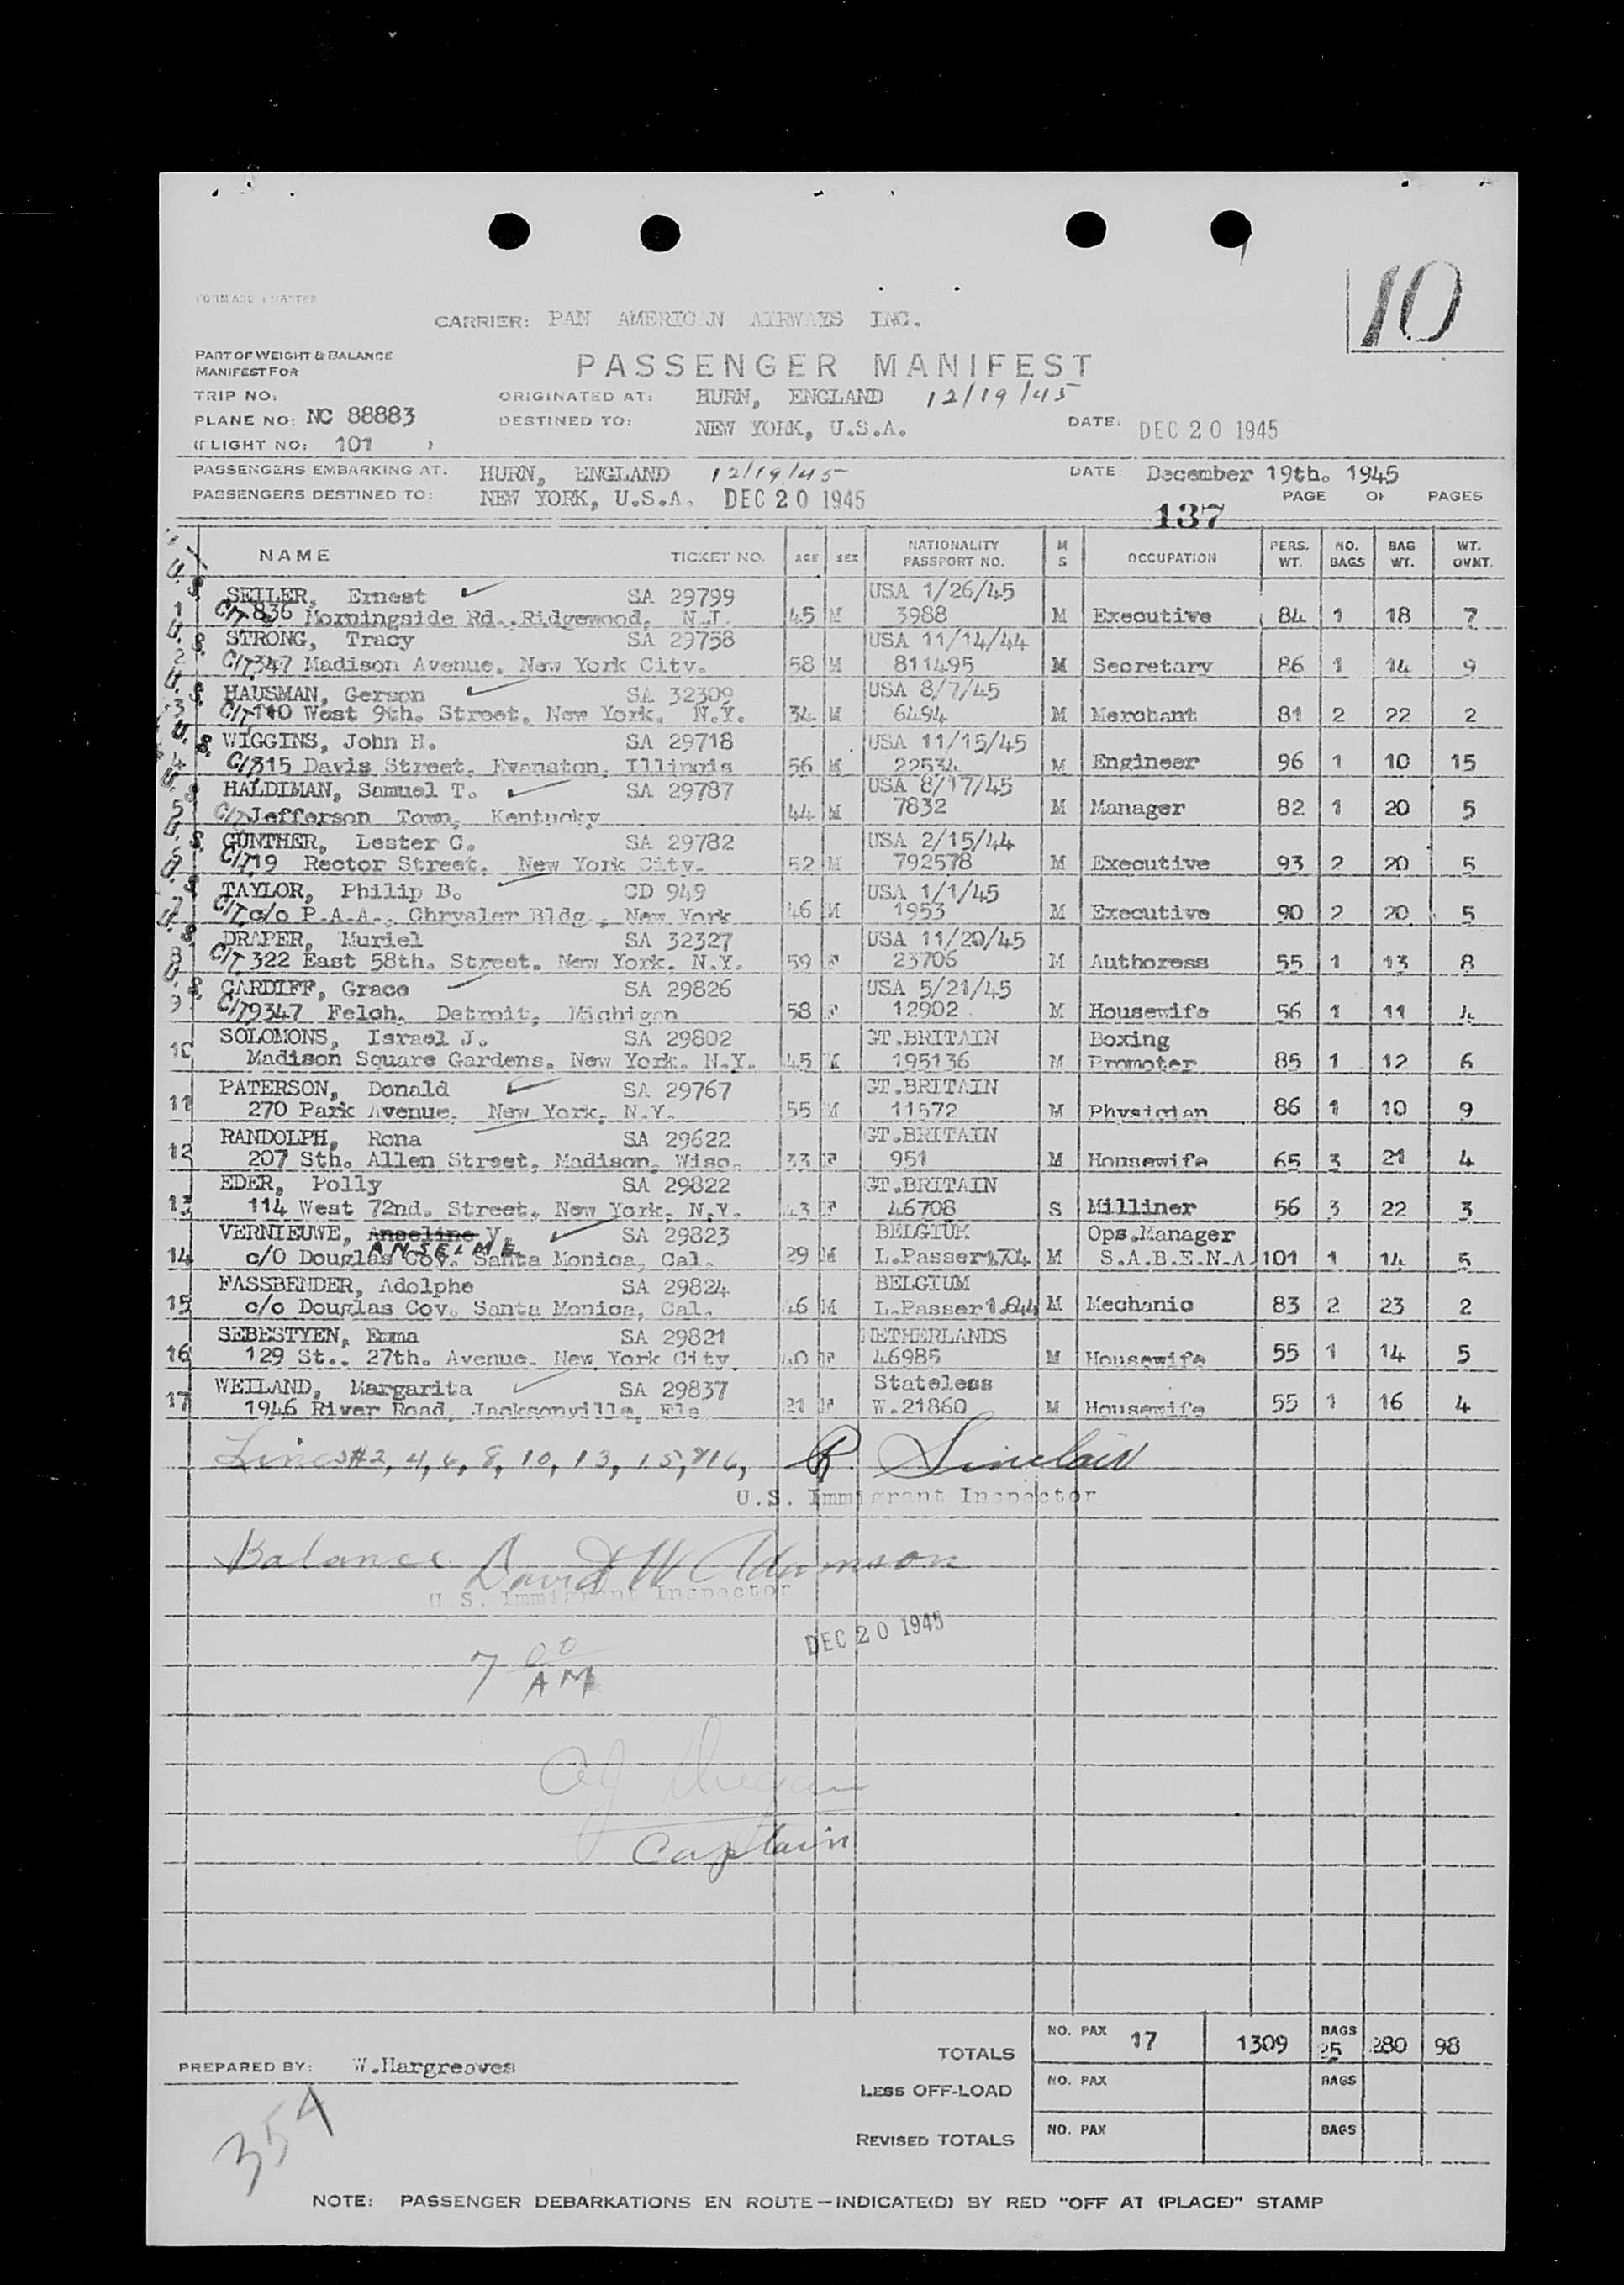 10
CARRIER: PAN AMERICAN AIRWAYS INC.
PART OF WEIGHT & BALANCE
MANIFEST FOR
PASSENGER MANIFEST
TRIP NO:
ORIGINATED AT: HURN, ENGLAND 12/19/45
PLANE NO: NC 88883
DESTINED TO: NEW YORK, U.S.A.
DATE: DEC 20 1945
(FLIGHT NO: 101 )
PASSENGERS EMBARKING AT. HURN, ENGLAND 12/19/45
DATE: December 19th. 1945
PASSENGERS DESTINED TO: NEW YORK, U.S.A. DEC 20 1945
PAGE OF PAGES
137
NAME TICKET NO. AGE SEX NATIONALITY PASSPORT NO. M S OCCUPATION PERS. WT. NO. BAGS BAG WT. WT. OVWT.
U.S. SEILER, Ernest SA 29799 USA 1/26/45
1 CIT 836 Morningside Rd., Ridgewood, N.J. 45 M 3988 M Executive 84 1 18 7
U.S. STRONG, Tracy SA 29758 USA 11/14/44
2 CIT 347 Madison Avenue, New York City. 58 M 811495 M Secretary 86 1 14 9
U.S. HAUSMAN, Gerson SA 32309 USA 8/7/45
3 CIT 110 West 9th. Street, New York, N.Y. 34 M 6494 M Merchant 81 2 22 2
U.S. WIGGINS, John H. SA 29718 USA 11/15/45
4 CIT 815 Davis Street, Evanston, Illinois 56 M 22534 M Engineer 96 1 10 15
U.S. HALDIMAN, Samuel T. SA 29787 USA 8/17/45
5 CIT Jefferson Town, Kentucky 44 M 7832 M Manager 82 1 20 5
U.S. GUNTHER, Lester C. SA 29782 USA 2/15/44
6 CIT 19 Rector Street, New York City. 52 M 792578 M Executive 93 2 20 5
U.S. TAYLOR, Philip B. CD 949 USA 1/1/45
7 CIT c/o P.A.A., Chrysler Bldg., New York 46 M 1953 M Executive 90 2 20 5
U.S. DRAPER, Muriel SA 32327 USA 11/20/45
8 CIT 322 East 58th. Street, New York, N.Y. 59 F 23706 M Authoress 55 1 13 8
U.S. CARDIFF, Grace SA 29826 USA 5/21/45
9 CIT 9347 Felch, Detroit, Michigan 58 F 12902 M Housewife 56 1 11 4
SOLOMONS, Israel J. SA 29802 GT.BRITAIN Boxing
10 Madison Square Gardens, New York, N.Y. 45 M 195136 M Promoter 85 1 12 6
PATERSON, Donald SA 29767 GT.BRITAIN
11 270 Park Avenue, New York, N.Y. 55 M 11572 M Physician 86 1 10 9
RANDOLPH, Rona SA 29622 GT.BRITAIN
12 207 Sth. Allen Street, Madison, Wisc. 33 F 951 M Housewife 65 3 21 4
EDER, Polly SA 29822 GT.BRITAIN
13 114 West 72nd. Street, New York, N.Y. 43 F 46708 S Milliner 56 3 22 3
VERNIEUWE, Anseline V. SA 29823 BELGIUM Ops.Manager
ANSELME
14 c/o Douglas Coy. Santa Monica, Cal. 29 M L.Passer 1704 M S.A.B.E.N.A. 101 1 14 5
FASSBENDER, Adolphe SA 29824 BELGIUM
15 c/o Douglas Coy. Santa Monica, Cal. 46 M L.Passer 1.644 M Mechanic 83 2 23 2
SEBESTYEN, Emma SA 29821 NETHERLANDS
16 129 St., 27th. Avenue, New York City 40 F 46985 M Housewife 55 1 14 5
WEILAND, Margarita SA 29837 Stateless
17 1946 River Road, Jacksonville, Fla 21 F W.21860 M Housewife 55 1 16 4
Lines #2, 4, 6, 8, 10, 13, 15, & 16, R. Sinclair
U.S. Immigrant Inspector
Balance David W Adamson
U.S. Immigrant Inspector
DEC 20 1945
7 00 AM
Captain
TOTALS NO. PAX 17 1309 BAGS 25 280 98
PREPARED BY: W.Hargreaves
LESS OFF-LOAD NO. PAX BAGS
REVISED TOTALS NO. PAX BAGS
354
NOTE: PASSENGER DEBARKATIONS EN ROUTE—INDICATE(D) BY RED "OFF AT (PLACE)" STAMP